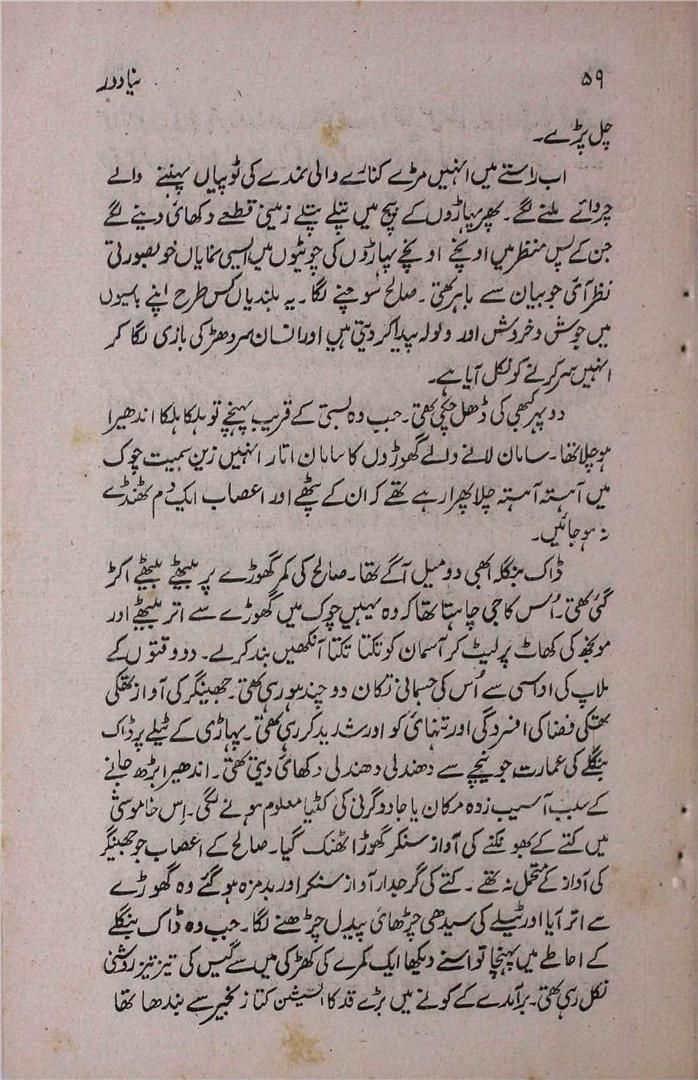 ۵۹ نیا دور
چل پڑے۔
اب راستے میں انہیں مڑے کنارے والی نمدے کی ٹوپیاں پہننے والے
چرواہے ملنے لگے۔ پھر پہاڑوں کے بیچ میں پتلے پتلے زمینی قطعے دکھائی دینے لگے
جن کے پس منظر میں اونچے اونچے پہاڑوں کی چوٹیوں میں ایسی نمایاں خوبصورتی
نظر آئی جو بیان سے باہر تھی۔ صالح سوچنے لگا۔ یہ بلندیاں کس طرح اپنے باسیوں
میں جوش و خروش اور ولولہ پیدا کر دیتی ہیں اور انسان سر دھڑ کی بازی لگا کر
انہیں سر کرنے کو نکل آیا ہے۔
دوپہر کبھی کی ڈھل چکی تھی۔ جب وہ بستی کے قریب پہنچے تو ہلکا ہلکا اندھیرا
ہو چلا تھا۔ سامان لانے والے گھوڑوں کا سامان اتار انہیں زین سمیت چوک
میں آہستہ آہستہ چلا پھرا رہے تھے کہ ان کے پٹھے اور اعصاب ایک دم ٹھنڈے
نہ ہو جائیں۔
ڈاک بنگلہ ابھی دو میل آگے تھا۔ صالح کی کمر گھوڑے پر بیٹھے بیٹھے اکڑ
گئی تھی۔ اُس کا جی چاہتا تھا کہ وہ یہیں چوک میں گھوڑے سے اتر بیٹھے اور
مونجھ کی کھاٹ پر لیٹ کر آسمان کو تکتا تکتا آنکھیں بند کر لے۔ دو وقتوں کے
ملاپ کی اداسی سے اُس کی جسمانی تکان دو چند ہو رہی تھی۔ جھینگر کی آواز تھکی
تھکی فضا کی افسردگی اور تنہائی کو اور شدید کر رہی تھی۔ پہاڑی کے ٹیلے پر ڈاک
بنگلے کی عمارت جو نیچے سے دھندلی دھندلی دکھائی دیتی تھی۔ اندھیرا بڑھ جانے
کے سبب آسیب زدہ مکان یا جادوگرنی کی کٹیا معلوم ہونے لگی۔ اِس خاموشی
میں کتے کے بھونکنے کی آواز سنکر گھوڑا ٹھنک گیا۔ صالح کے اعصاب جو جھینگر
کی آواز کے متحمل نہ تھے۔ کتے کی گرجدار آواز سنکر اور بدمزہ ہو گئے وہ گھوڑے
سے اتر آیا اور ٹیلے کی سیدھی چڑھائی پیدل چڑھنے لگا۔ جب وہ ڈاک بنگلے
کے احاطے میں پہنچا تو اسنے دیکھا ایک کمرے کی کھڑکی میں سے گیس کی تیز تیز روشنی
نکل رہی تھی۔ برآمدے کے کونے میں بڑے قد کا السیشن کتا زنجیر سے بندھا تھا